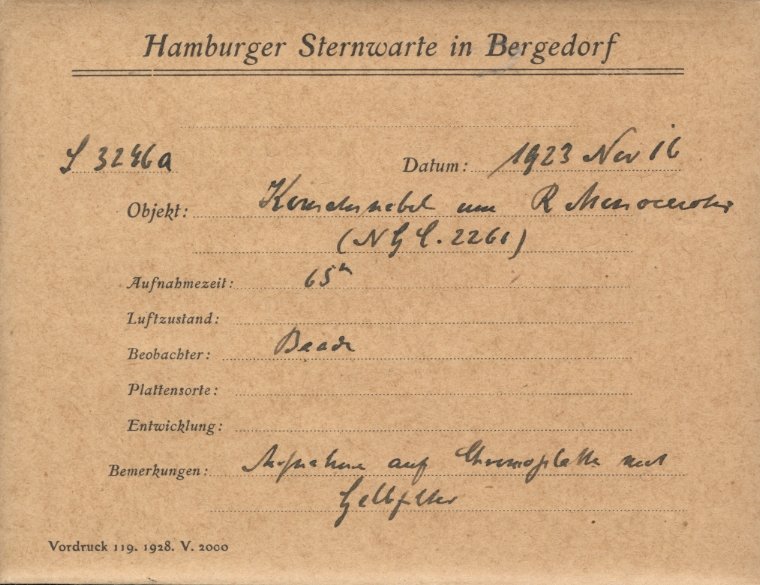 Hamburger Sternwarte in Bergedorf
S 3246a
Datum: 1923 Nov 16
Objekt: um R Monocerotis
(N G C. 2261)
Aufnahmezeit: 65m
Luftzustand:
Beobachter: Baade
Plattensorte:
Entwicklung:
Bemerkungen: Aufnahme auf Chromoplatte mit
Gelbfilter
Vordruck 119. 1928. V. 2000